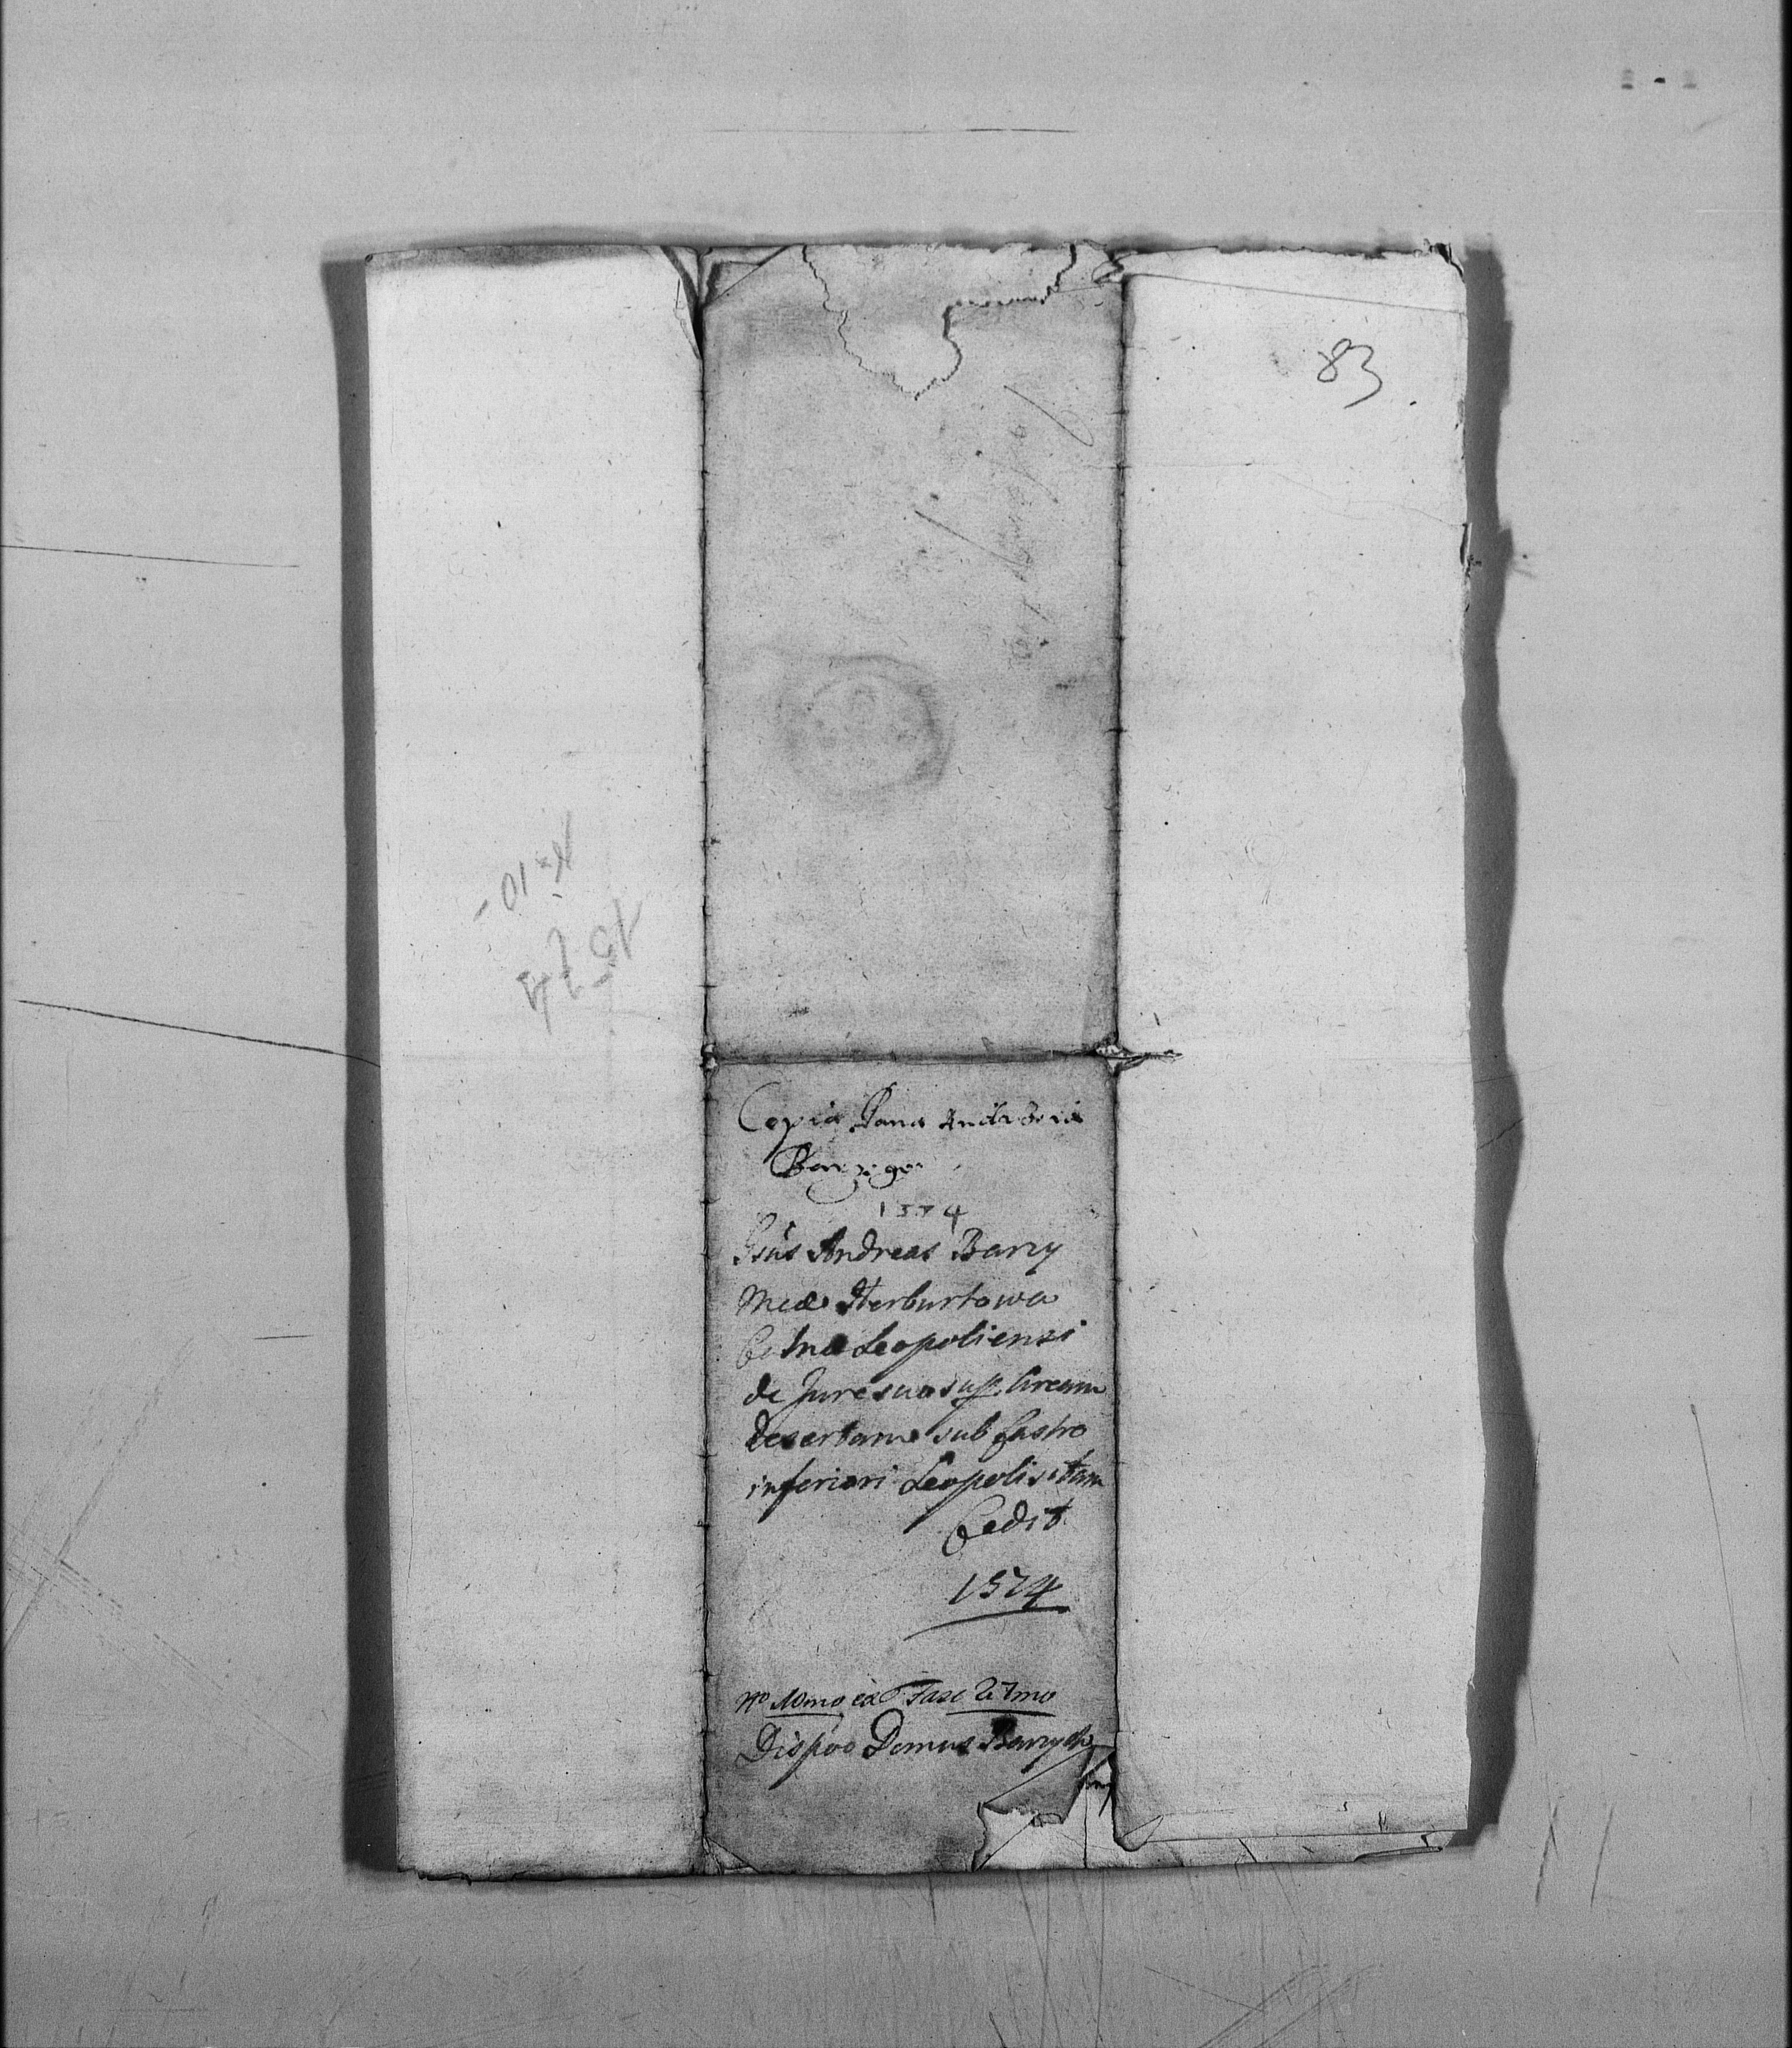 83
N. 10 -
1574
Copia Pana Andrzeia
Barzego
1574
Gsus Andreas Barzy
Mcae Herburtowa
Castnae Leopoliensi
de Jure suo sup. Aream
desertam sub Castro
inferiori Leopoli sitam
Cedit
1574
No 10mo ex Fasc 27mo
Dispoo Domus Barzych